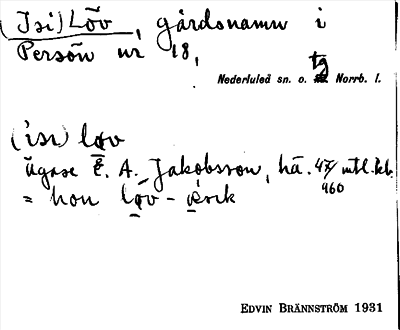 (Isi) Löv, gårdsnamn i
Persön nr 18,
Nederluleå sn. o. tg Norrb. l.
(isi) løv
Ägare E. A. Jakobsson, hå. 47/960 mtl. kb.
= hon løv-
EDVIN BRÄNNSTRÖM 1931